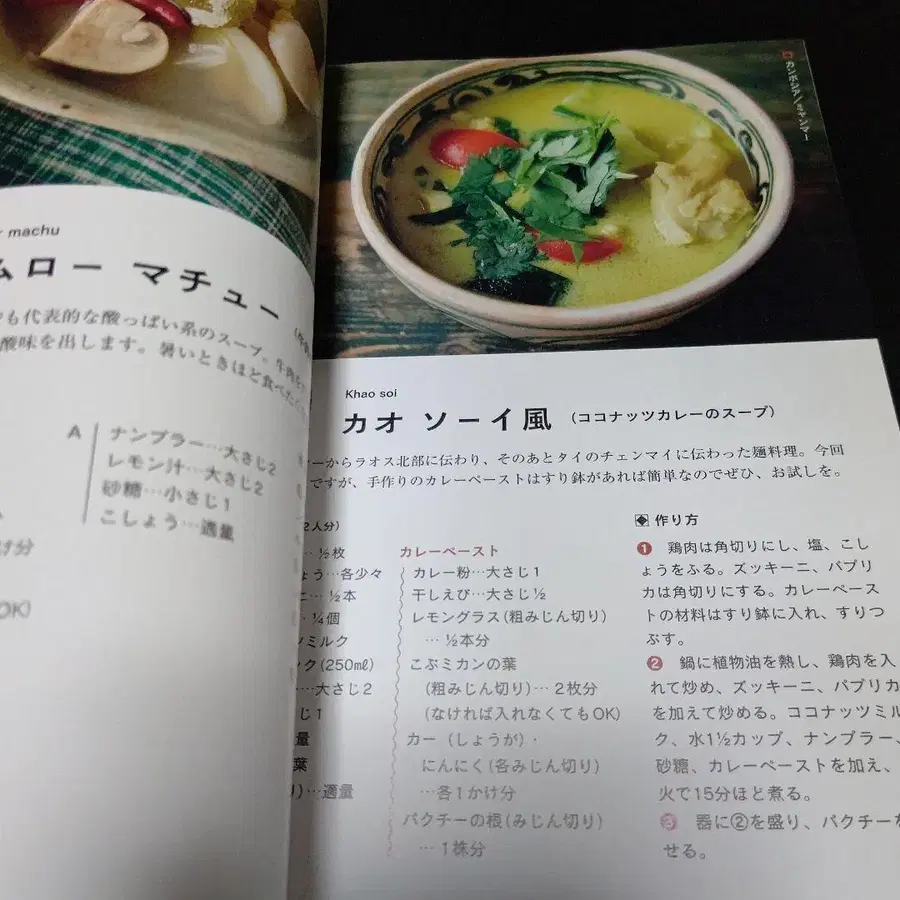 machu
ムロー マチュー
も代表的な酸っぱい系のスープ。
酸味を出します。暑いときほど食べたく
A
ナンプラー…大さじ2
レモン汁…大さじ2
砂糖…小さじ1
こしょう…適量
け分
OK)
カンボジア／ミャンマー
Khao soi
カオ ソーイ風 (ココナッツカレーのスープ)
ーからラオス北部に伝わり、そのあとタイのチェンマイに伝わった麺料理。今回
ですが、手作りのカレーペーストはすり鉢があれば簡単なのでぜひ、お試しを。
2人分)
… ½枚
ょう…各少々
ニ… ½本
… ¼個
ツミルク
ック(250mℓ)
…大さじ2
じ1
量
葉
り)…適量
カレーペースト
カレー粉…大さじ1
干しえび…大さじ½
レモングラス(粗みじん切り)
… ½本分
こぶミカンの葉
(粗みじん切り)… 2枚分
(なければ入れなくてもOK)
カー（しょうが）・
にんにく(各みじん切り)
…各1かけ分
パクチーの根(みじん切り)
… 1株分
作り方
1 鶏肉は角切りにし、塩、こし
ょうをふる。ズッキーニ、パプリ
カは角切りにする。カレーペース
トの材料はすり鉢に入れ、すりつ
ぶす。
2 鍋に植物油を熱し、鶏肉を入
れて炒め、ズッキーニ、パプリカ
を加えて炒める。ココナッツミル
ク、水1½カップ、ナンプラー、
砂糖、カレーペーストを加え、
火で15分ほど煮る。
3 器に②を盛り、パクチーを
せる。